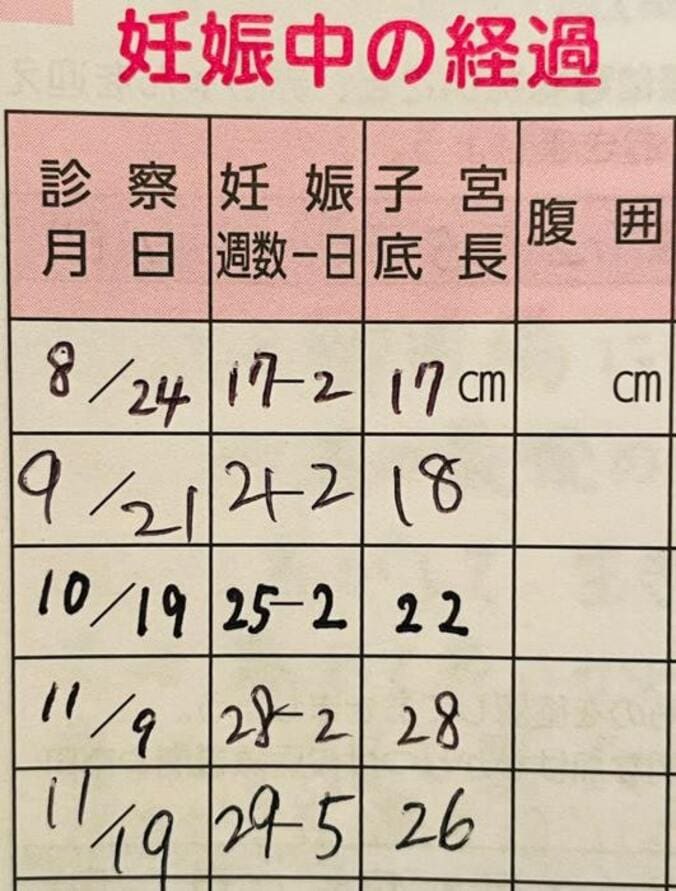 妊娠中の経過
診察月日 妊娠週数-日 子宮底長 腹囲
8/24 17-2 17cm cm
9/21 21-2 18
10/19 25-2 22
11/9 28-2 28
11/19 29-5 26